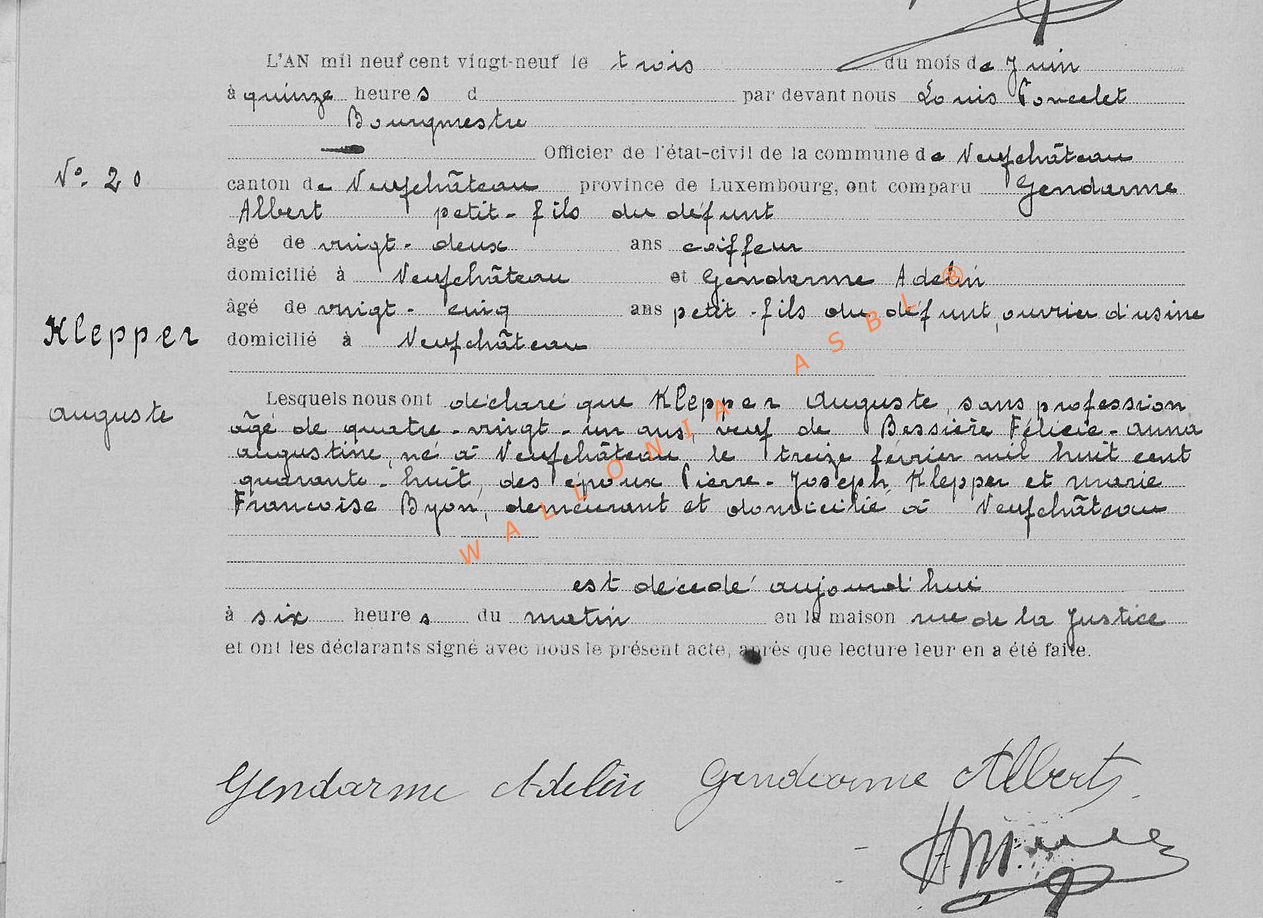 L'AN mil neuf cent vingt-neuf le trois du mois de Juin
à quinze heures d par devant nous Louis Poncelet
Bourgmestre
Officier de l'état-civil de la commune de Neufchâteau
N° 20
canton de Neufchâteau province de Luxembourg, ont comparu Gendarme
Albert petit-fils du défunt
âgé de vingt-deux ans coiffeur
domicilié à Neufchâteau et Gendarme Adelin
âgé de vingt-cinq ans petit-fils du défunt, ouvrier d'usine
Klepper
domicilié à Neufchâteau
auguste
Lesquels nous ont déclaré que Klepper Auguste, sans profession
âgé de quatre-vingt-un ans, veuf de Bessière Félicie-Anna
augustine, né à Neufchâteau le treize février mil huit cent
quarante-huit, des époux Pierre-Joseph Klepper et marie
Francoise Byon, demeurant et domicilié à Neufchâteau
est décédé aujourd'hui
à six heures du matin en la maison rue de la Justice
et ont les déclarants signé avec nous le présent acte, après que lecture leur en a été faite.
WALLONIA ASBL ®
Gendarme Adelin Gendarme Albert